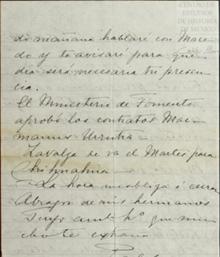 de mañana hablaré con Mace
do y te avisaré para que
dia será necesaria tu presen
cia.
El Ministerio de Fomento
aprobó los contratos Mac
manus Urrutia
se va el Martes para
Chihuahua
La hora me obliga á cerrar
Abrazos de mis hermanos
Tuyo amt. h° que mu
cho te extraña